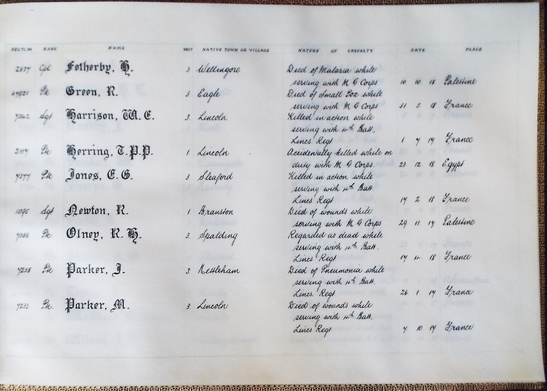 NAME NATIVE TOWN OR VILLAGE NATURE OF CASUALTY DATE PLACE
Fotherby, H. 3 Wellingore Died of Malaria while
serving with M G Corps 10 10 18 Palestine
Green, R. 3 Eagle Died of Small Pox while
serving with M G Corps 31 3 18 France
Sgt Harrison, W. E. 3 Lincoln Killed in action while
serving with Batt.
Lincs Regt 1 7 17 France
Herring, T. P. P. 1 Lincoln Accidentally killed while on
duty with M G Corps 23 12 18 Egypt
Jones, E. G. 3 Sleaford Killed in action while
serving with Batt
Lincs Regt 14 2 18 France
Sgt Newton, R. 1 Branston Died of wounds while
serving with M G Corps 29 11 17 Palestine
Olney, R. H. 3 Spalding Regarded as dead while
serving with Batt.
Lincs Regt 18 France
Parker, J. 3 Died of Pneumonia while
serving with Batt.
Lincs Regt 26 1 17 France
Parker, M. 3 Lincoln Died of wounds while
serving with Batt.
Lincs Regt 10 17 France